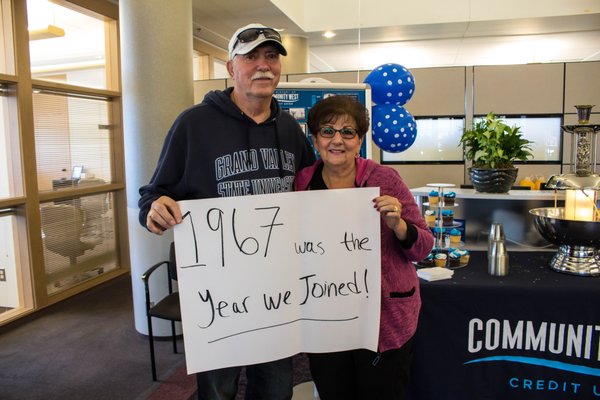 COMMUNITY
WEST
GRAND VALLEY
STATE UNIVERSITY
1967 was the
Year we Joined!
COMMUNITY
CREDIT